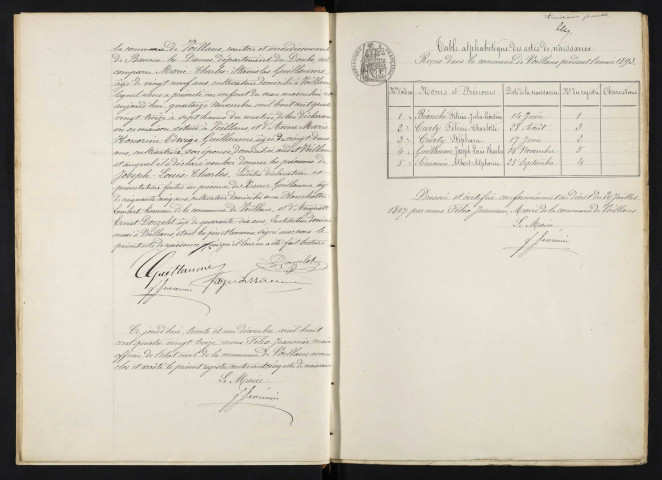 la commune de Voillans, canton et arrondissement
de Baume les Dames, département du Doubs, est
comparu Marie-Charles-Stanislas Guillaume,
âgé de vingt neuf ans, cultivateur domicilié à Voillans
lequel nous a présenté un enfant du sexe masculin né
aujourd'hui quatorze novembre mil huit cent quatre
vingt treize à sept heures du matin, de lui déclarant
en sa maison située à Voillans, et d'Anne Marie
Honorine Guillaume âgée de vingt
ans, cultivatrice, son épouse domiciliée audit Voillans
et auquel il a déclaré vouloir donner les prénoms de
Joseph-Louis-Charles. Lesdites déclaration et
présentation faites en présence de Guillaume, âgé
de cinquante cinq ans, cultivateur domicilié aux
commune de Voillans, et d'Auguste
Ernest Douzelot âgé de quarante dix ans, Instituteur domicilié
aussi à Voillans, et ont les père et témoins, signé avec nous le
présent acte de naissance, après qu'il leur en a été fait lecture
Guillaume Douzelot
F Jeannin
Ce jourd'hui, trente et un décembre, mil huit
cent quatre vingt treize, nous Félix Jeannin, maire
officier de l'état civil de la commune de Voillans avons
clos et arrêté le présent registre contenant cinq actes de naissance
Le Maire
F Jeannin
Table alphabétique des actes de naissance
Reçus dans la commune de Voillans pendant l'année 1893.
Noms et Prénoms Date de la naissance No du registre Observations
1 14 Juin 1
2 Curty Charlotte 28 Août 3
3 Curty Stéphanie 17 Juin 2
4 Guillaume Joseph Louis Charles 14 Novembre 5
5 Simonin Albert Alphonse 25 Septembre 4
Dressé et certifié conformément au décret du 20 Juillet
1807 par nous Félix Jeannin, Maire de la commune de Voillans
Le Maire
F Jeannin